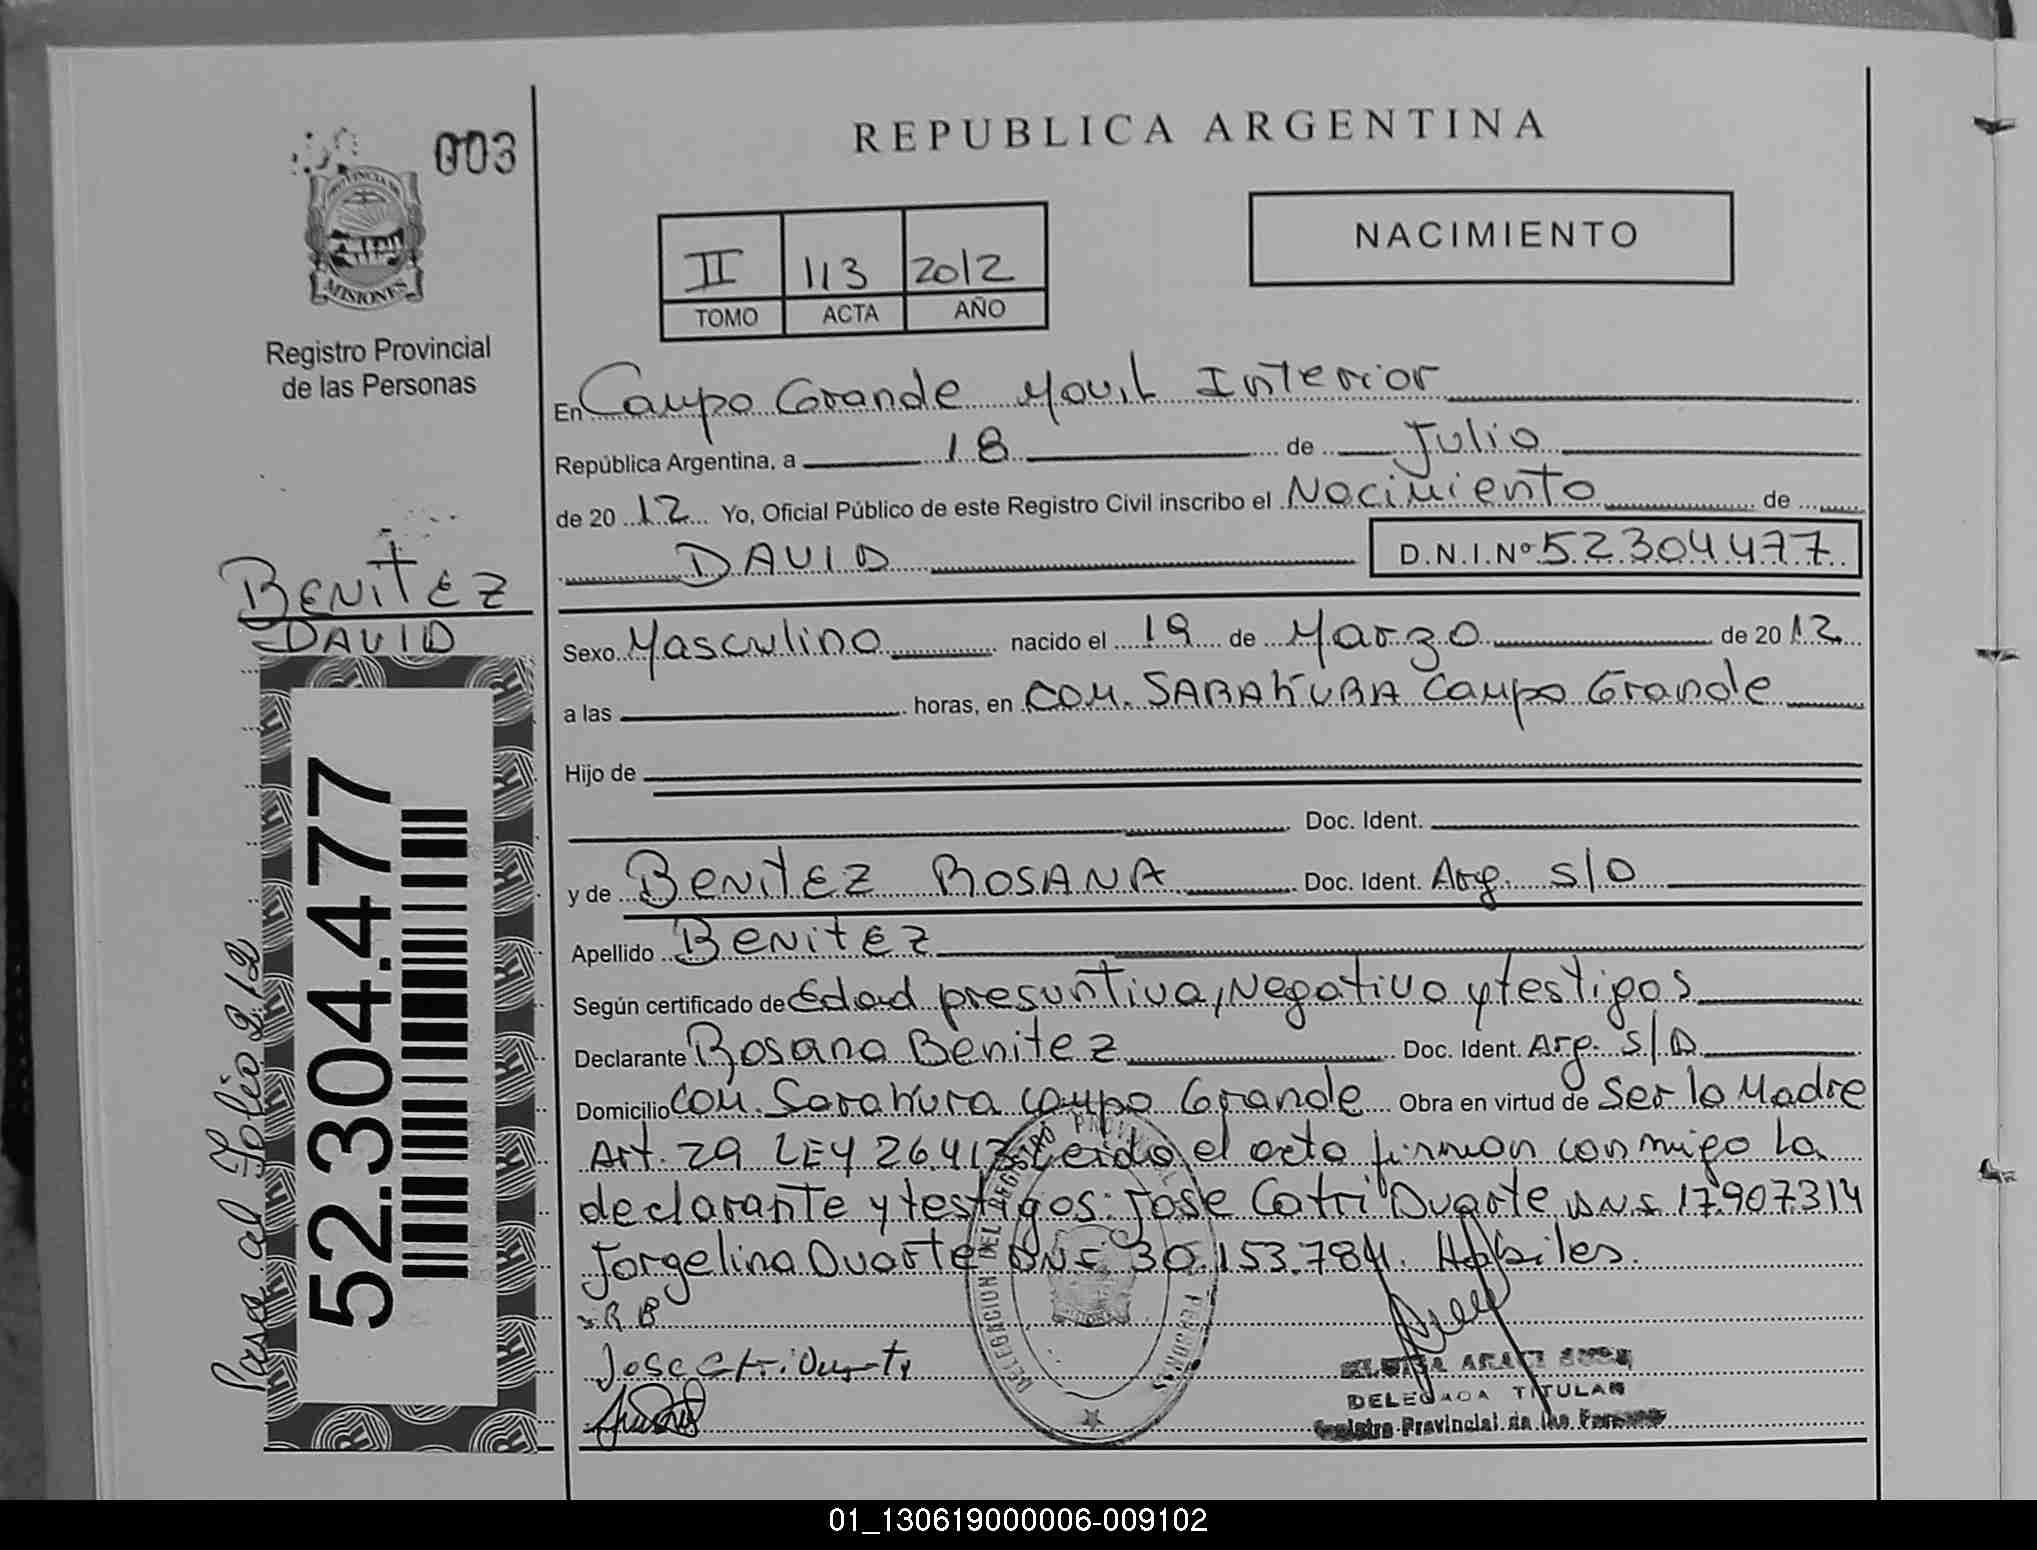 003
PROVINCIA DE
MISIONES
Registro Provincial
de las Personas
BENITEZ
DAVID
52.304.477
Pasa al Folio 212
REPUBLICA ARGENTINA
NACIMIENTO
II 113 2012
TOMO ACTA AÑO
En Campo Grande Movil Interior
República Argentina, a 18 de Julio
de 2012 Yo, Oficial Público de este Registro Civil inscribo el Nacimiento de
DAVID D.N.I.Nº 52304477
Sexo Masculino nacido el 19 de Marzo de 2012
a las horas, en COM. SARAKURA Campo Grande
Hijo de
Doc. Ident.
y de BENITEZ ROSANA Doc. Ident. Arg. S/D
Apellido BENITEZ
Según certificado de Edad presuntiva, Negativo y testigos
Declarante Rosana Benitez Doc. Ident. Arg. S/D
Domicilio Com. Sarakura Campo Grande Obra en virtud de Ser la Madre
Art. 29 LEY 26.413 Leida el acta firman conmigo la
declarante y testigos: Jose Catri Duarte DNI 17.907.314
Jorgelina Duarte DNI 30.153.784. Habiles.
x R B
Jose Catri Duarte
DELEGACION DEL REGISTRO PROVINCIAL PERSONAS
DELEGADA TITULAR
Registro Provincial de las Personas
01_130619000006-009102